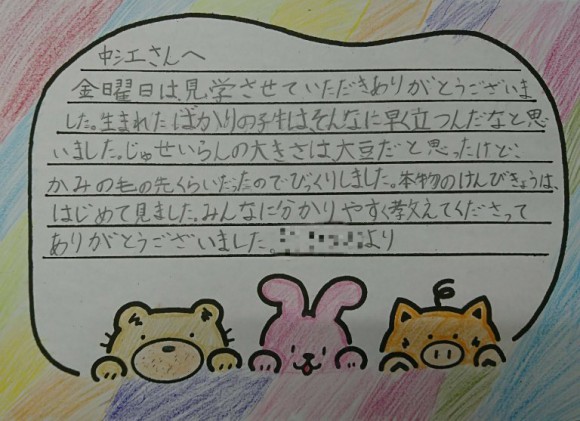 中江さんへ
金曜日は、見学させていただきありがとうございま
した。生まれたばかりの子牛は、そんなに早く立つんだなと思
いました。じゅせいらんの大きさは、大豆だと思ったけど、
かみの毛の先くらいだったのでびっくりしました。本物のけんびきょうは、
はじめて見ました。みんなに分かりやすく教えてくださって
ありがとうございました。より